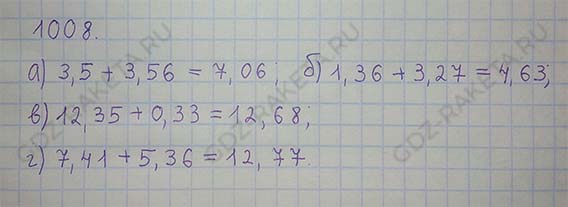 1008.
а) 3,5 + 3,56 = 7,06; б) 1,36 + 3,27 = 4,63;
в) 12,35 + 0,33 = 12,68;
г) 7,41 + 5,36 = 12,77.
GDZ-RAKETA.RU
GDZ-RAKETA.RU
GDZ-RAKETA.RU